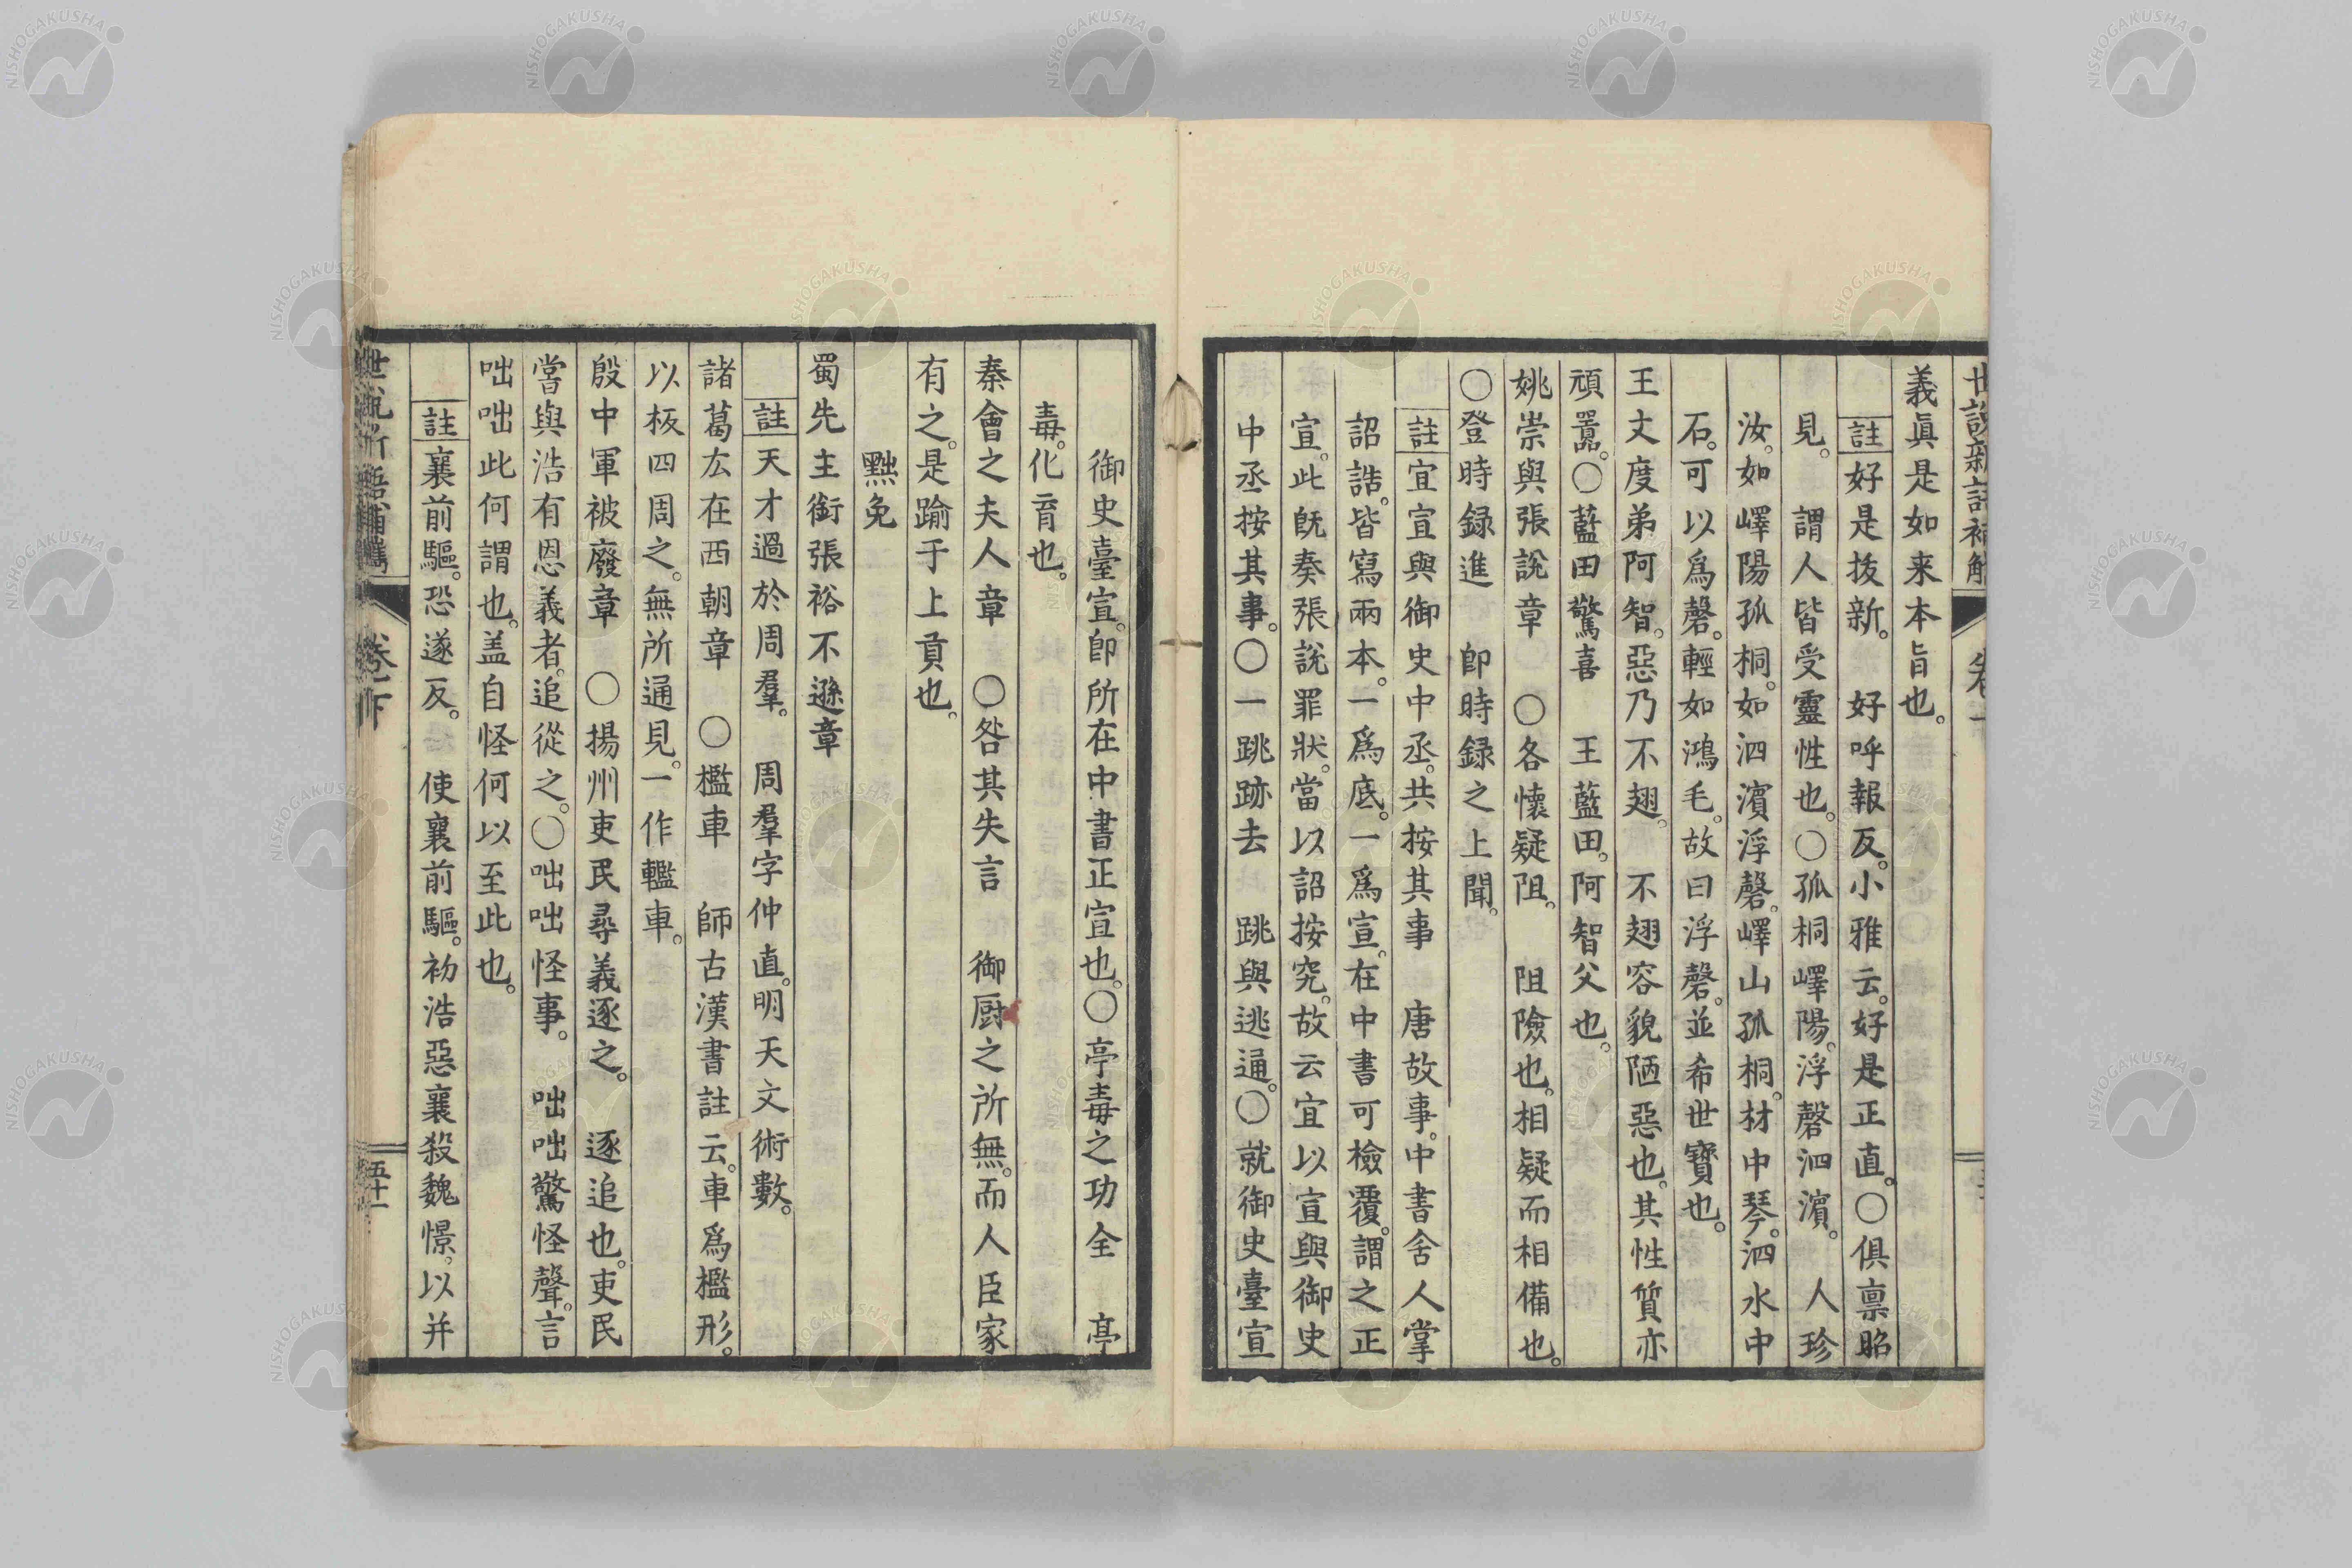 義眞是如来本旨也。
註好是拔新。 好呼報反。小雅云。好是正直。○俱禀昭
見。 謂人皆受靈性也。○孤桐嶧陽。浮磬泗濵。 人珍
汝。如嶧陽孤桐。如泗濵浮磬。嶧山孤桐。材中琴。泗水中
石。可以爲磬。輕如鴻毛。故曰浮磬。並希世寶也。
王丈度弟阿智。惡乃不翅。 不翅容貌陋惡也。其性質亦
頑嚚。○藍田驚喜 王藍田。阿智父也。
姚崇與張說章 ○各懷疑阻。 阻險也。相疑而相備也。
○登時録進 卽時録之上聞。
註宜宣與御史中丞。共按其事 唐故事。中書舍人掌
詔誥。皆寫兩本。一爲底。一爲宣。在中書可檢覆。謂之正
宣。此旣奏張說罪狀。當以詔按究。故云宜以宣與御史
中丞按其事。○一跳跡去 跳與逃通。○就御史臺宣
御史臺宣。卽所在中書正宣也。○亭毒之功全 亭
毒。化育也。
秦會之夫人章 ○咎其失言 御厨之所無。而人臣家
有之。是踰于上貢也。
黜免
蜀先主銜張裕不遜章
註天才過於周羣。 周羣字仲直。明天文術數。
諸葛厷在西朝章 ○檻車 師古漢書註云。車爲檻形。
以板四周之。無所通見。一作轞車。
殷中軍被廢章 ○揚州吏民尋義逐之。 逐追也。吏民
嘗與浩有恩義者。追從之。○咄咄怪事。 咄咄驚怪聲。言
咄咄此何謂也。盖自怪何以至此也。
註襄前驅。恐遂反。 使襄前驅。初浩惡襄殺魏憬。以并